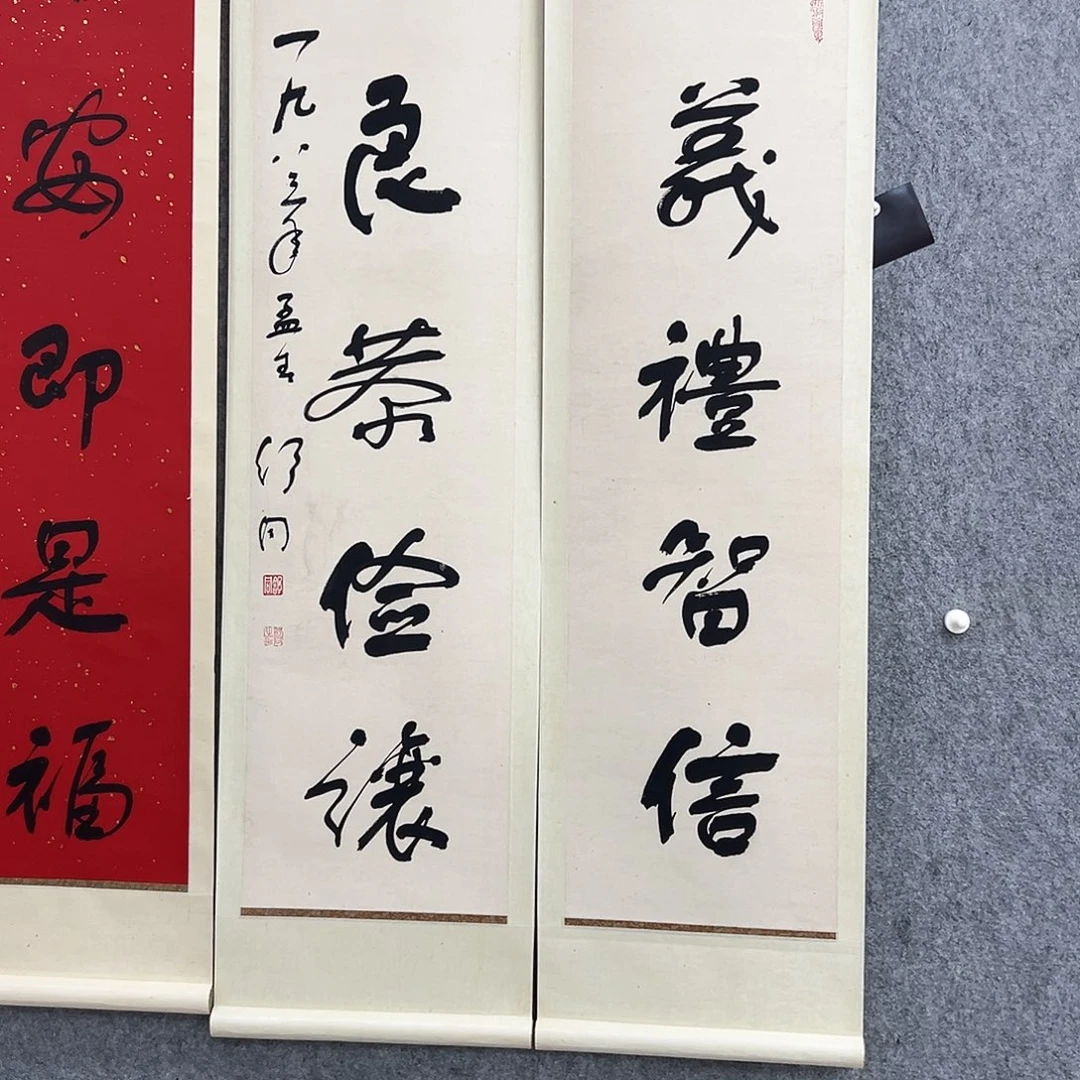 義禮智信
良恭儉讓
一九八三年孟冬舒同
安即是福